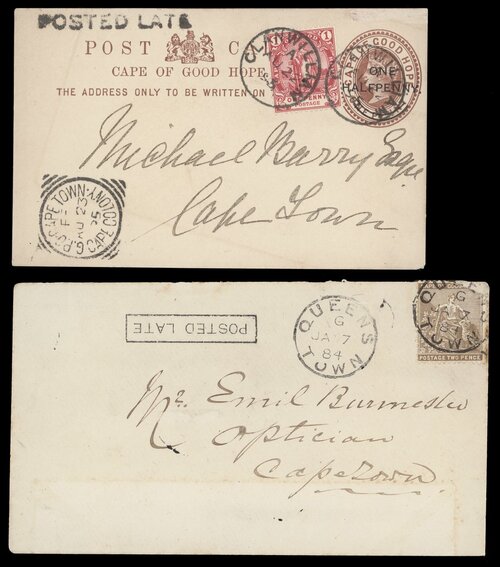 POSTED LATE
POST C
CAPE OF GOOD HOPE
THE ADDRESS ONLY TO BE WRITTEN ON
1 1
ONE PENNY
POSTAGE
CLANWILLIAM
ONE
HALFPENNY
GOOD HOPE
Michael Barry Esqre
Cape Town
G.P.O. CAPE TOWN.
CAPE COLONY
AU 23
95
POSTED LATE
QUEENS
TOWN
G
JA 7
84
QUEENS
TOWN
G
84
POSTAGE TWO PENCE
Mr. Emil Burmester
Optician
Capetown